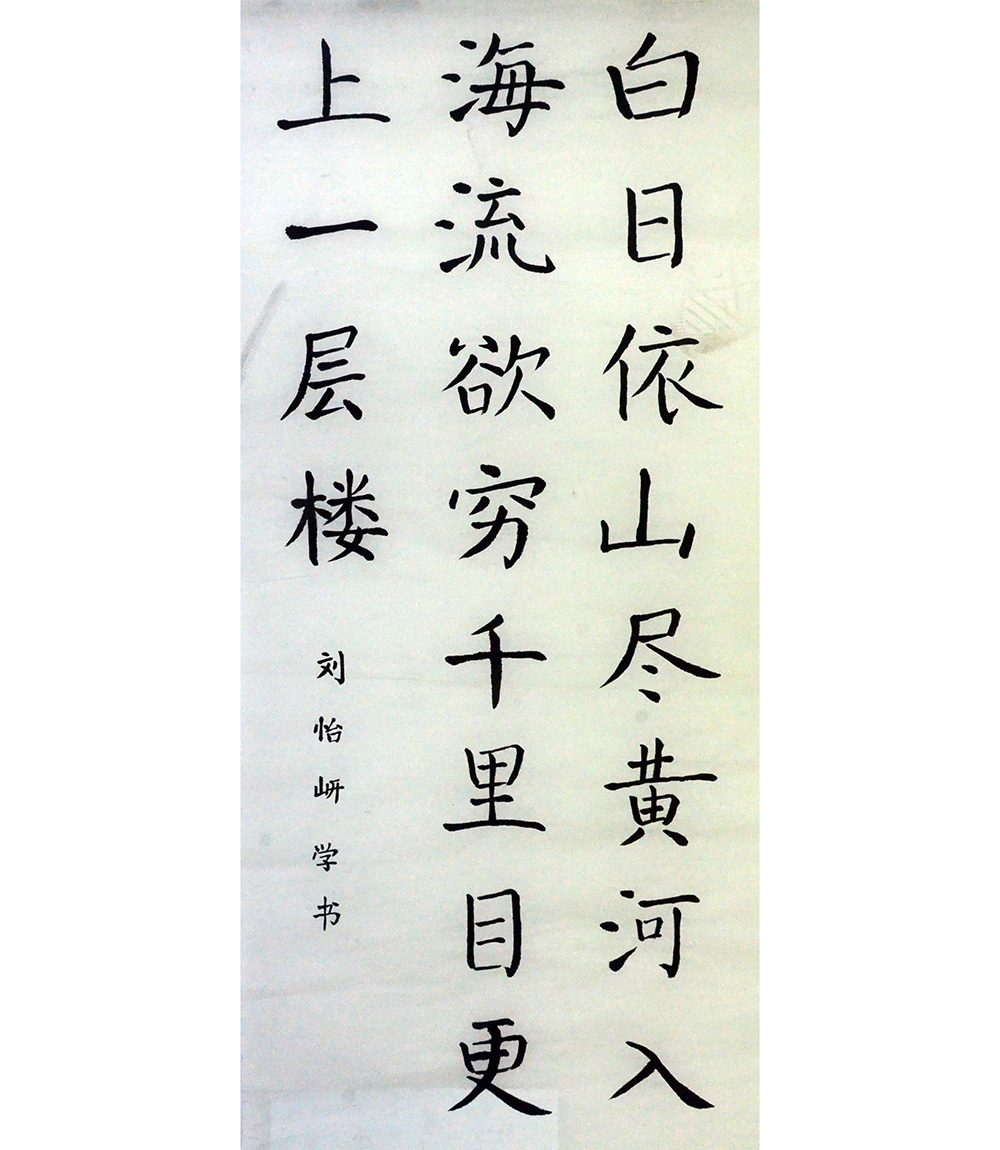 白日依山尽黄河入
海流欲穷千里目更
上一层楼
刘怡岍学书